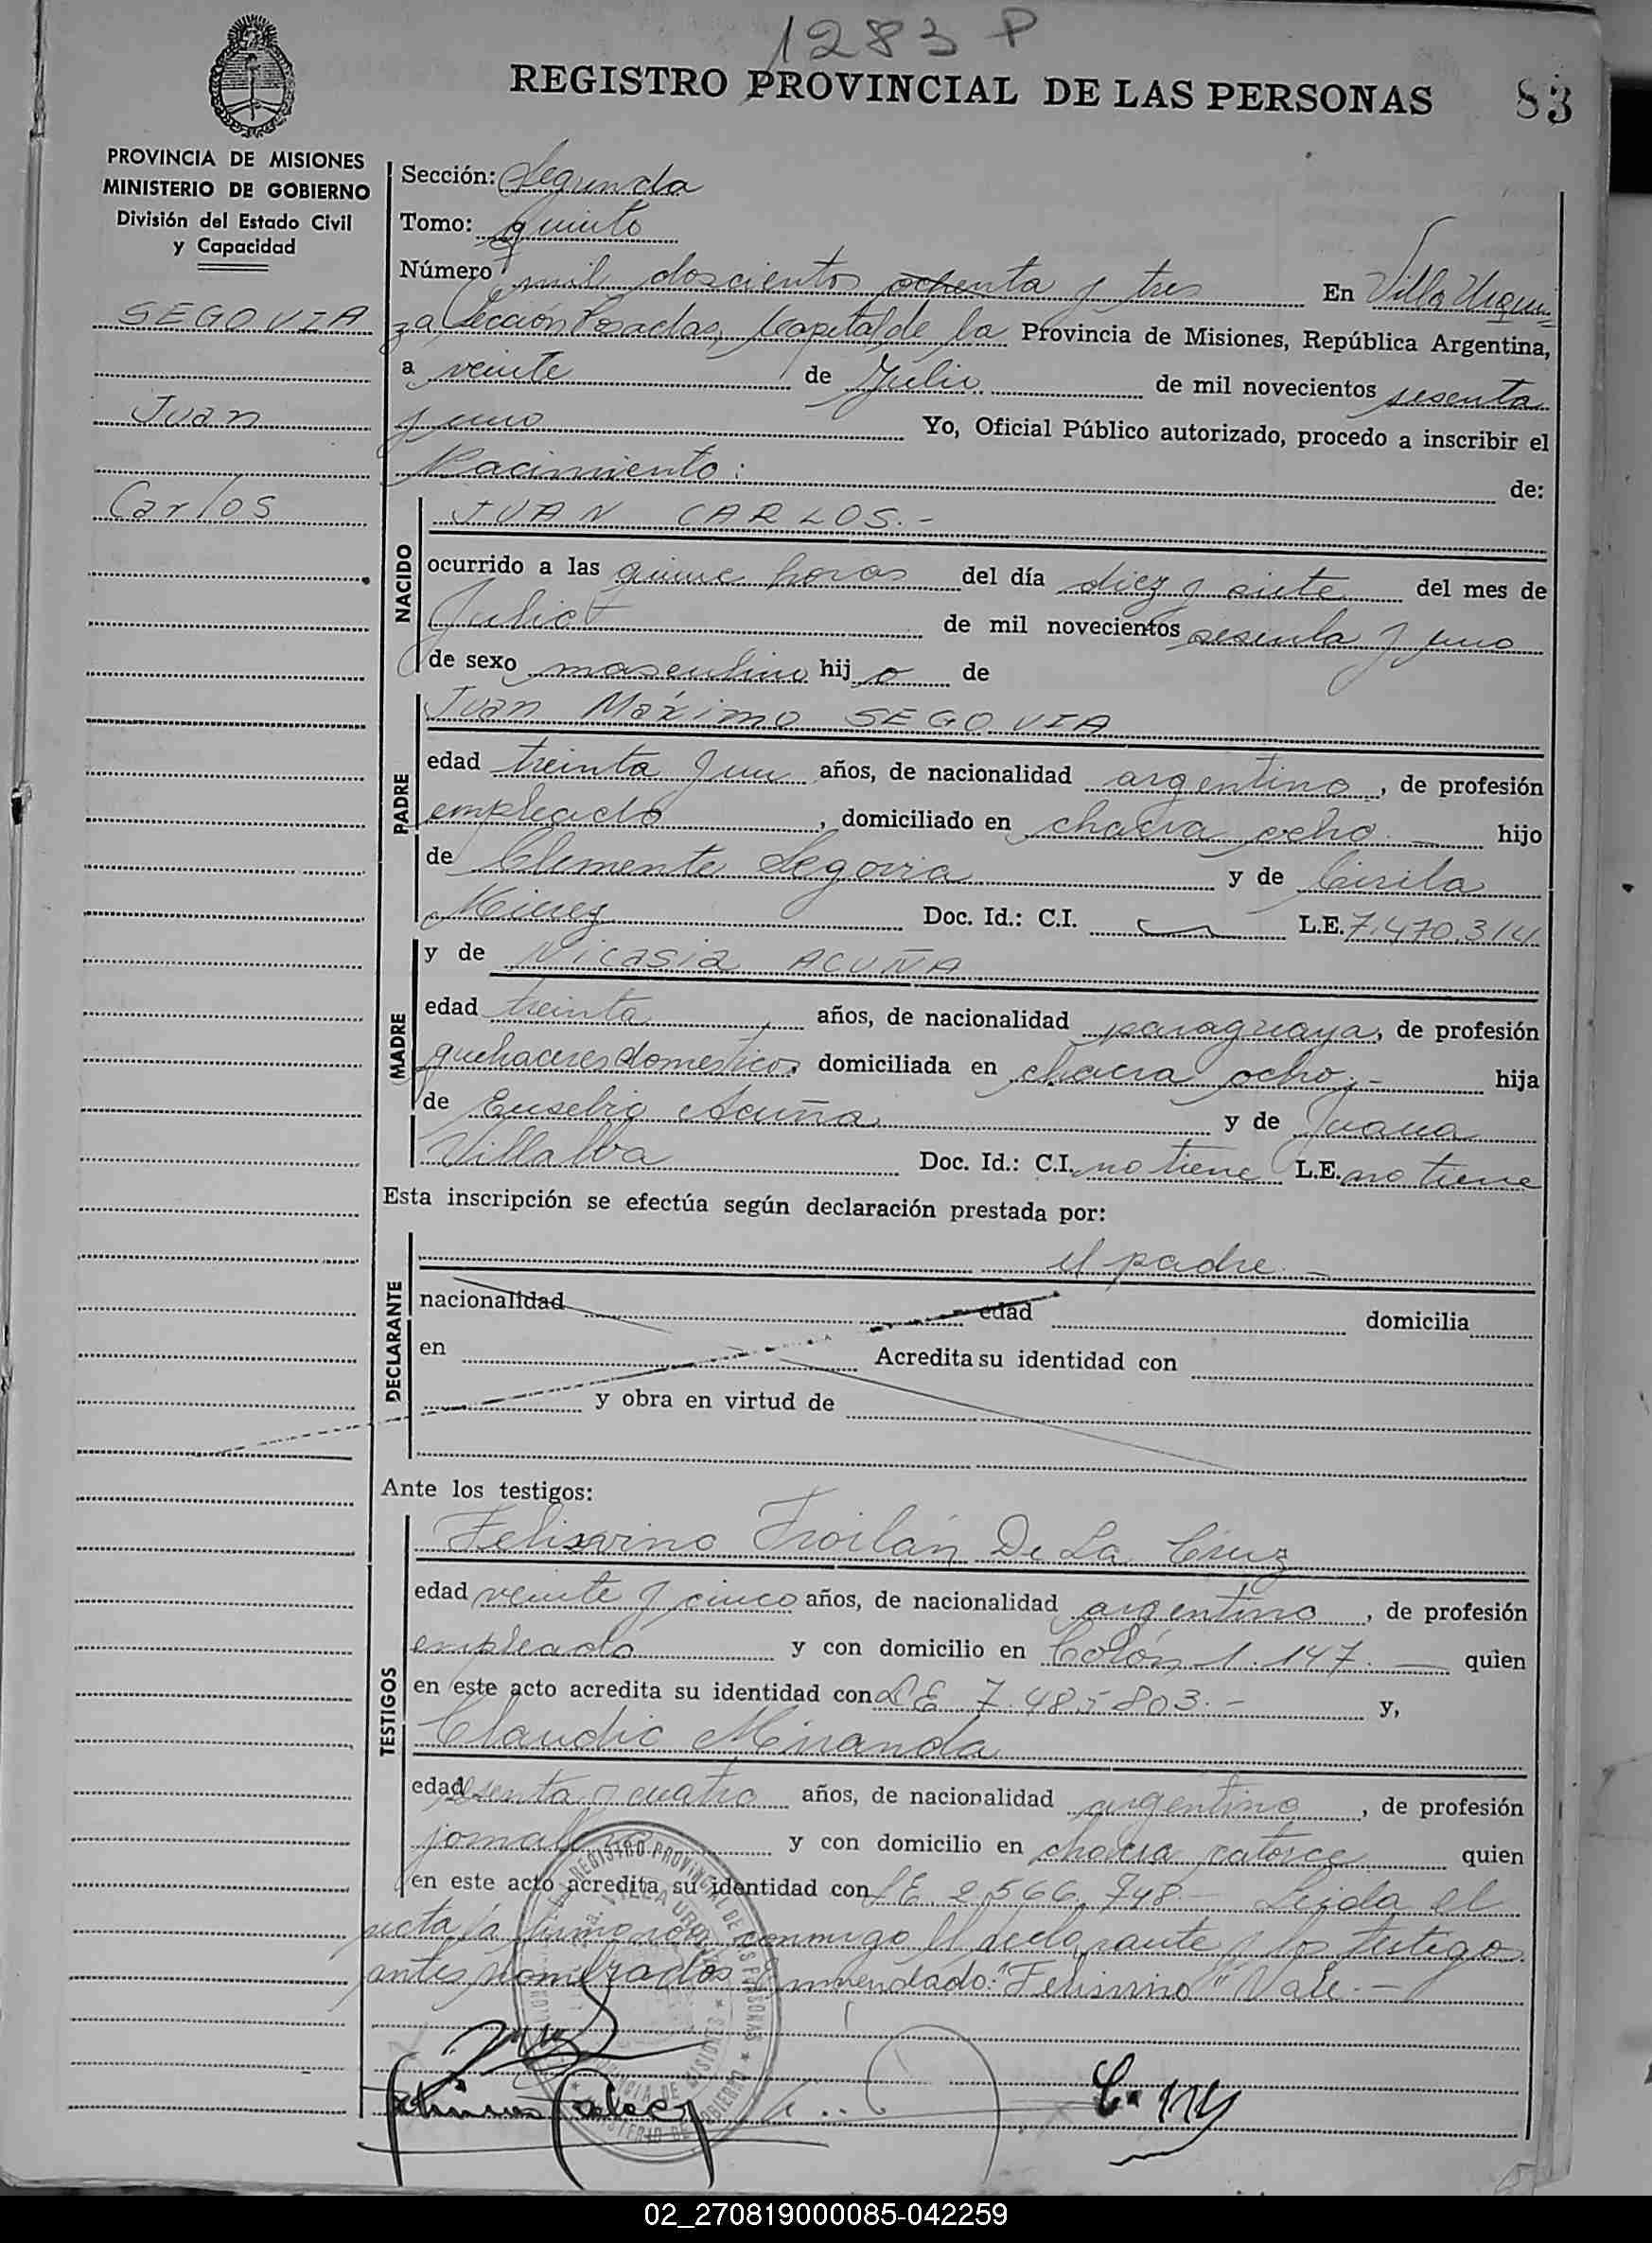 1283 P
REGISTRO PROVINCIAL DE LAS PERSONAS 83
PROVINCIA DE MISIONES
MINISTERIO DE GOBIERNO
División del Estado Civil
y Capacidad
SEGOVIA
Juan
Carlos
Sección: Segunda
Tomo: quinto
Número mil doscientos ochenta y tres En Villa Urqui-
za Sección Posadas, Capital de la Provincia de Misiones, República Argentina,
a veinte de Julio de mil novecientos sesenta
y uno Yo, Oficial Público autorizado, procedo a inscribir el
Nacimiento: de:
NACIDO
JUAN CARLOS.-
ocurrido a las quince horas del día diez y siete del mes de
Julio de mil novecientos sesenta y uno
de sexo masculino hijo de
PADRE
Juan Máximo SEGOVIA
edad treinta y un años, de nacionalidad argentino, de profesión
empleado, domiciliado en chacra ocho.- hijo
de Clemente Segovia y de Cirila
Doc. Id.: C.I. L.E. 7.470.314
MADRE
y de Nicasia ACUÑA
edad treinta años, de nacionalidad paraguaya, de profesión
quehaceres domesticos domiciliada en chacra ocho,- hija
de Eusebio Acuña y de Juana
Villalva Doc. Id.: C.I. no tiene L.E. no tiene
Esta inscripción se efectúa según declaración prestada por:
DECLARANTE
el padre.-
nacionalidad edad domicilia
en Acredita su identidad con
y obra en virtud de
Ante los testigos:
TESTIGOS
Felisvino Froilán De La Cruz
edad veinte y cinco años, de nacionalidad argentino, de profesión
empleado y con domicilio en Colón 1.147.- quien
en este acto acredita su identidad con LE 7.485803.- y,
Claudio Miranda
edad sesenta y cuatro años, de nacionalidad argentino, de profesión
jornalero y con domicilio en chacra catorce quien
en este acto acredita su identidad con LE 2.566.748.- Leida el
acta la firmaron conmigo el declarante y los testigos
antes nombrados. Enmendado: "Felisvino" Vale.-
REGISTRO PROVINCIAL DE LAS PERSONAS
02_270819000085-042259